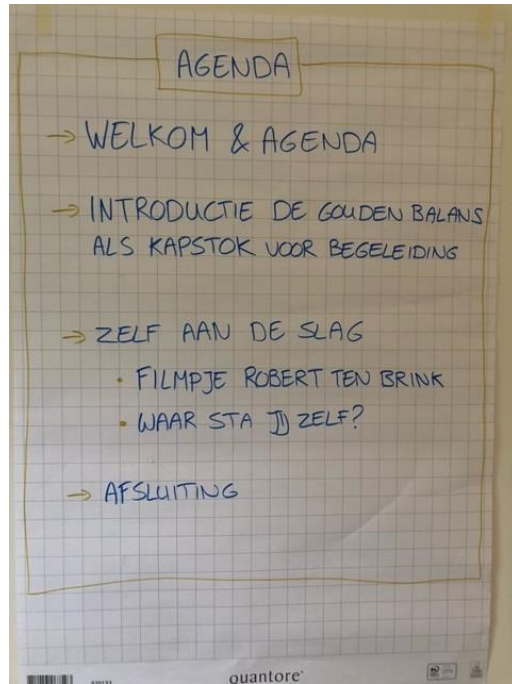 AGENDA
→ WELKOM & AGENDA
→ INTRODUCTIE DE GOUDEN BALANS
ALS KAPSTOK VOOR BEGELEIDING
→ ZELF AAN DE SLAG
• FILMPJE ROBERT TEN BRINK
• WAAR STA JIJ ZELF?
→ AFSLUITING
quantore